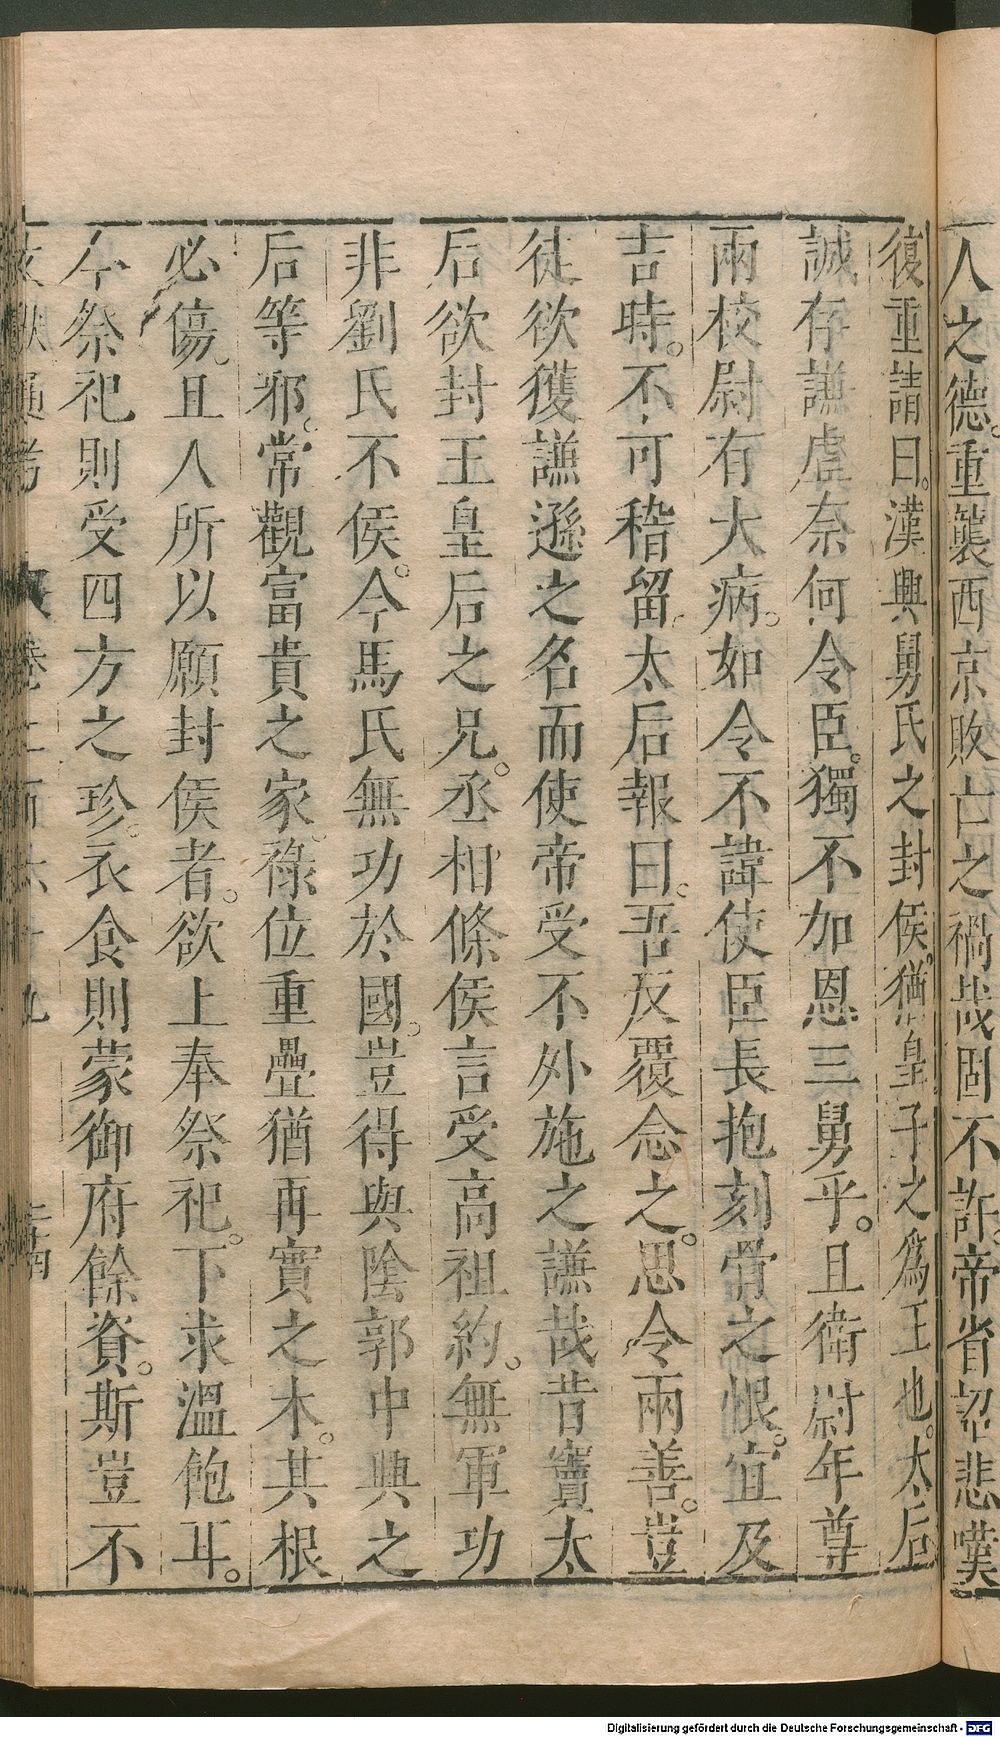 人之德。重襲西京敗亡之禍哉固不許。帝省詔悲嘆
復重請曰。漢興舅氏之封侯。猶皇子之爲王也。太后
誠存謙虛奈何令臣。獨不加恩三舅乎。且衛尉年尊
兩校尉有大病。如令不諱使臣長抱刻骨之恨。宜及
吉時。不可稽留。太后報曰。吾反覆念之。思令兩善。豈
徒欲獲謙遜之名而使帝受不外施之謙哉昔竇太
后欲封王皇后之兄。丞相條侯言受高祖約。無軍功
非劉氏不侯。今馬氏無功於國。豈得與陰郭中興之
后等邪。常觀富貴之家。祿位重疊猶再實之木。其根
必傷。且人所以願封侯者。欲上奉祭祀。下求溫飽耳。
今祭祀則受四方之珍。衣食則蒙御府餘資。斯豈不
Digitalisierung gefördert durch die Deutsche Forschungsgemeinschaft - DFG